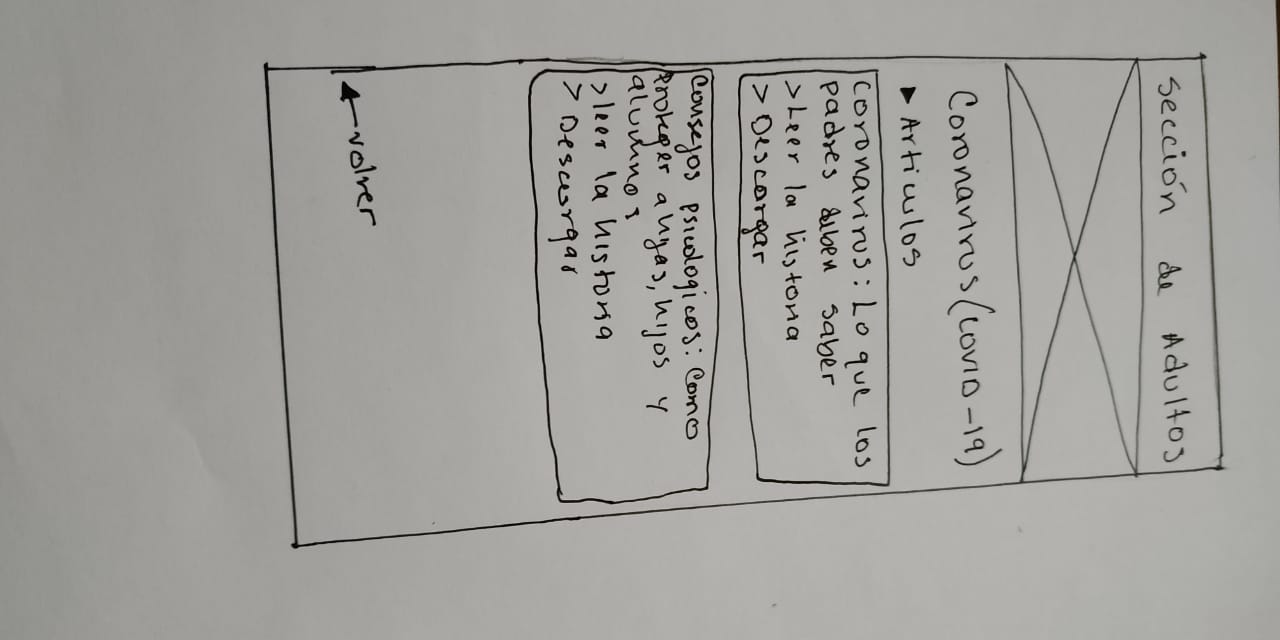 Sección de Adultos
Coronavirus (COVID-19)
▶ Articulos
Coronavirus: Lo que los
padres deben saber
> Leer la historia
> Descargar
Consejos psicologicos: Como
proteger a hijas, hijos y
alumnos
> leer la historia
> Descargar
← volver